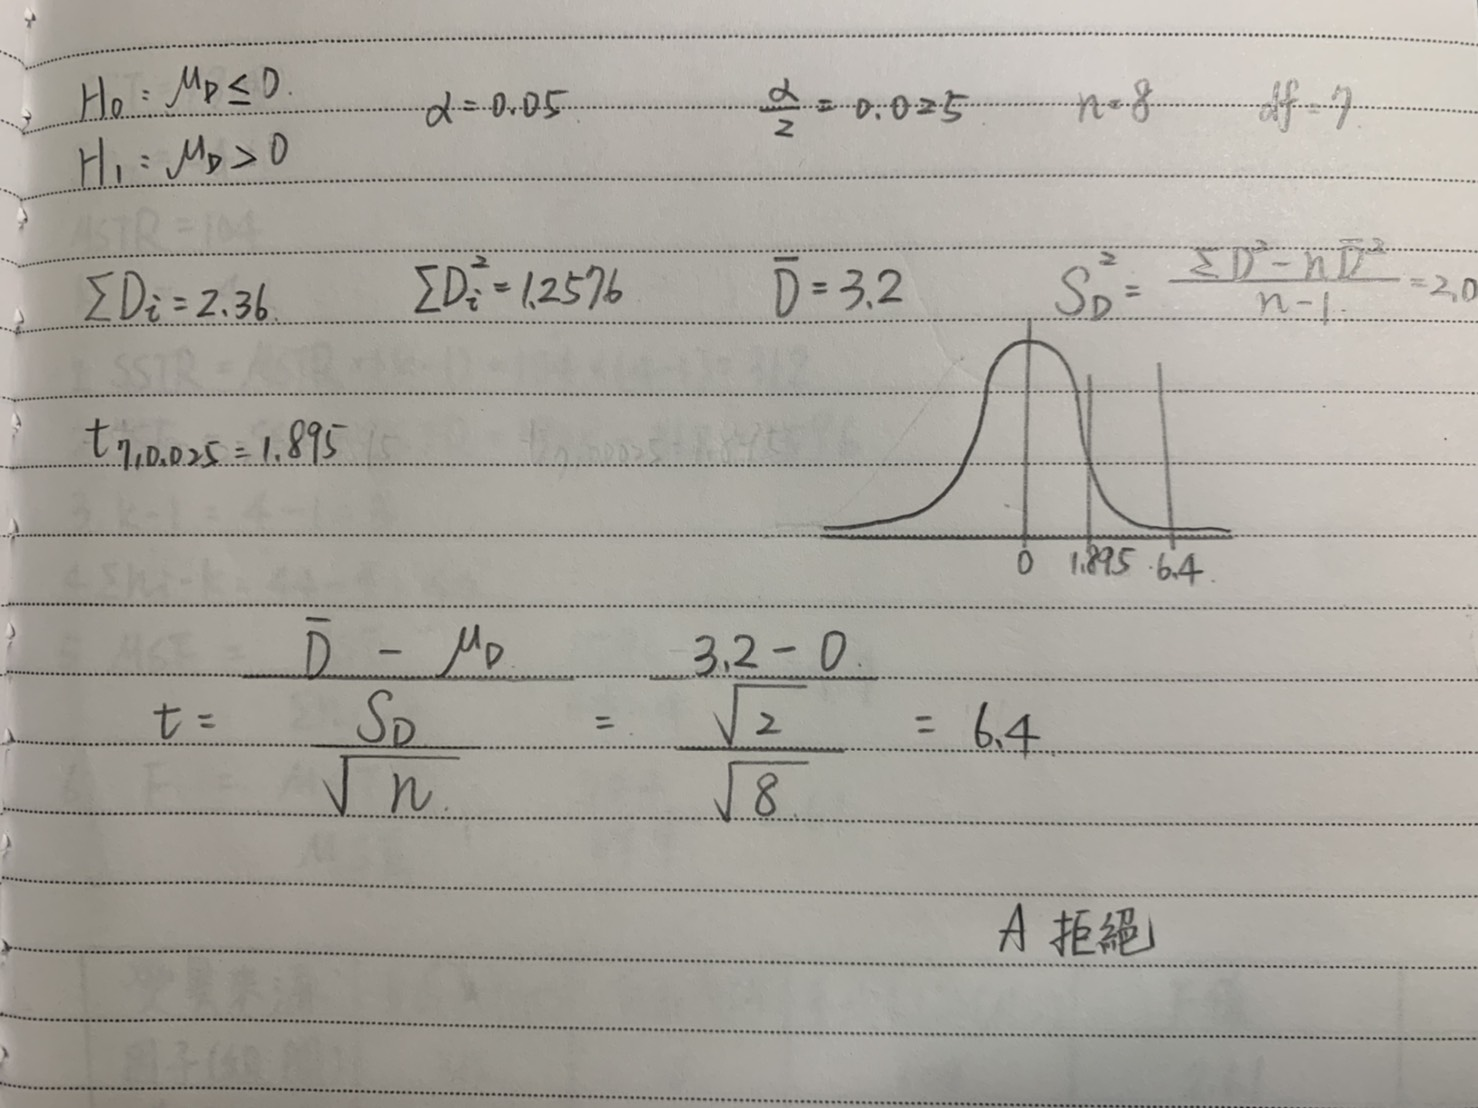 H₀: μ_D ≤ 0. α=0.05 α/2 = 0.025 n=8 df=7
H₁: μ_D > 0
ΣDᵢ=2.36 ΣDᵢ²=1.2576 D̄=3.2 S_D² = (ΣD²-nD̄²)/(n-1) =2.0
t₇,₀.₀₂₅=1.895
0 1.895 6.4
t = (D̄ - μ_D)/(S_D/√n) = (3.2-0)/(√2/√8) = 6.4
A 拒絕